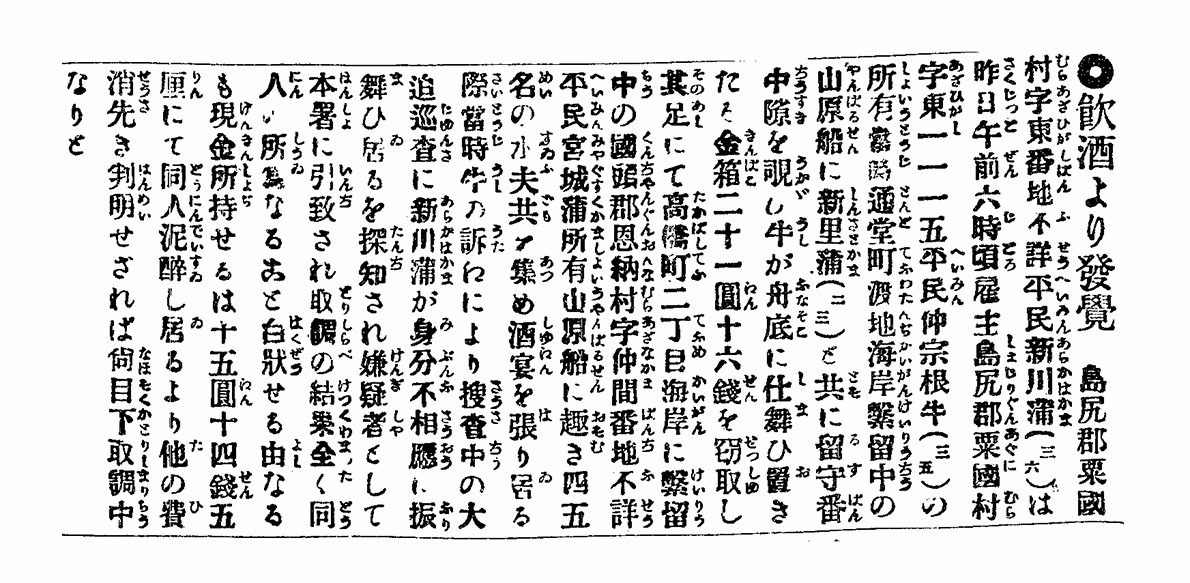 ◎飮酒より發覺　島尻郡粟國
村字東番地不詳平民新川蒲(三六)は
昨日午前六時頃雇主島尻郡粟國村
字東一一一五平民仲宗根牛(三五)の
所有當時通堂町渡地海岸繋留中の
山原船に新里蒲(二三)と共に留守番
中隙を覗し牛が舟底に仕舞ひ置き
たる金箱二十一圓十六錢を窃取し
其足にて高橋町二丁目海岸に繋留
中の國頭郡恩納村字仲間番地不詳
平民宮城蒲所有山原船に趣き四五
名の水夫共を集め酒宴を張り居る
際當時牛の訴わにより搜査中の大
追巡査に新川蒲が身分不相應に振
舞ひ居るを探知され嫌疑者として
本署に引致され取調の結果全く同
人の所爲なること白狀せる由なる
も現金所持せるは十五圓十四錢五
厘にて同人泥醉し居るより他の費
消先き判明せざれば尙目下取調中
なりと